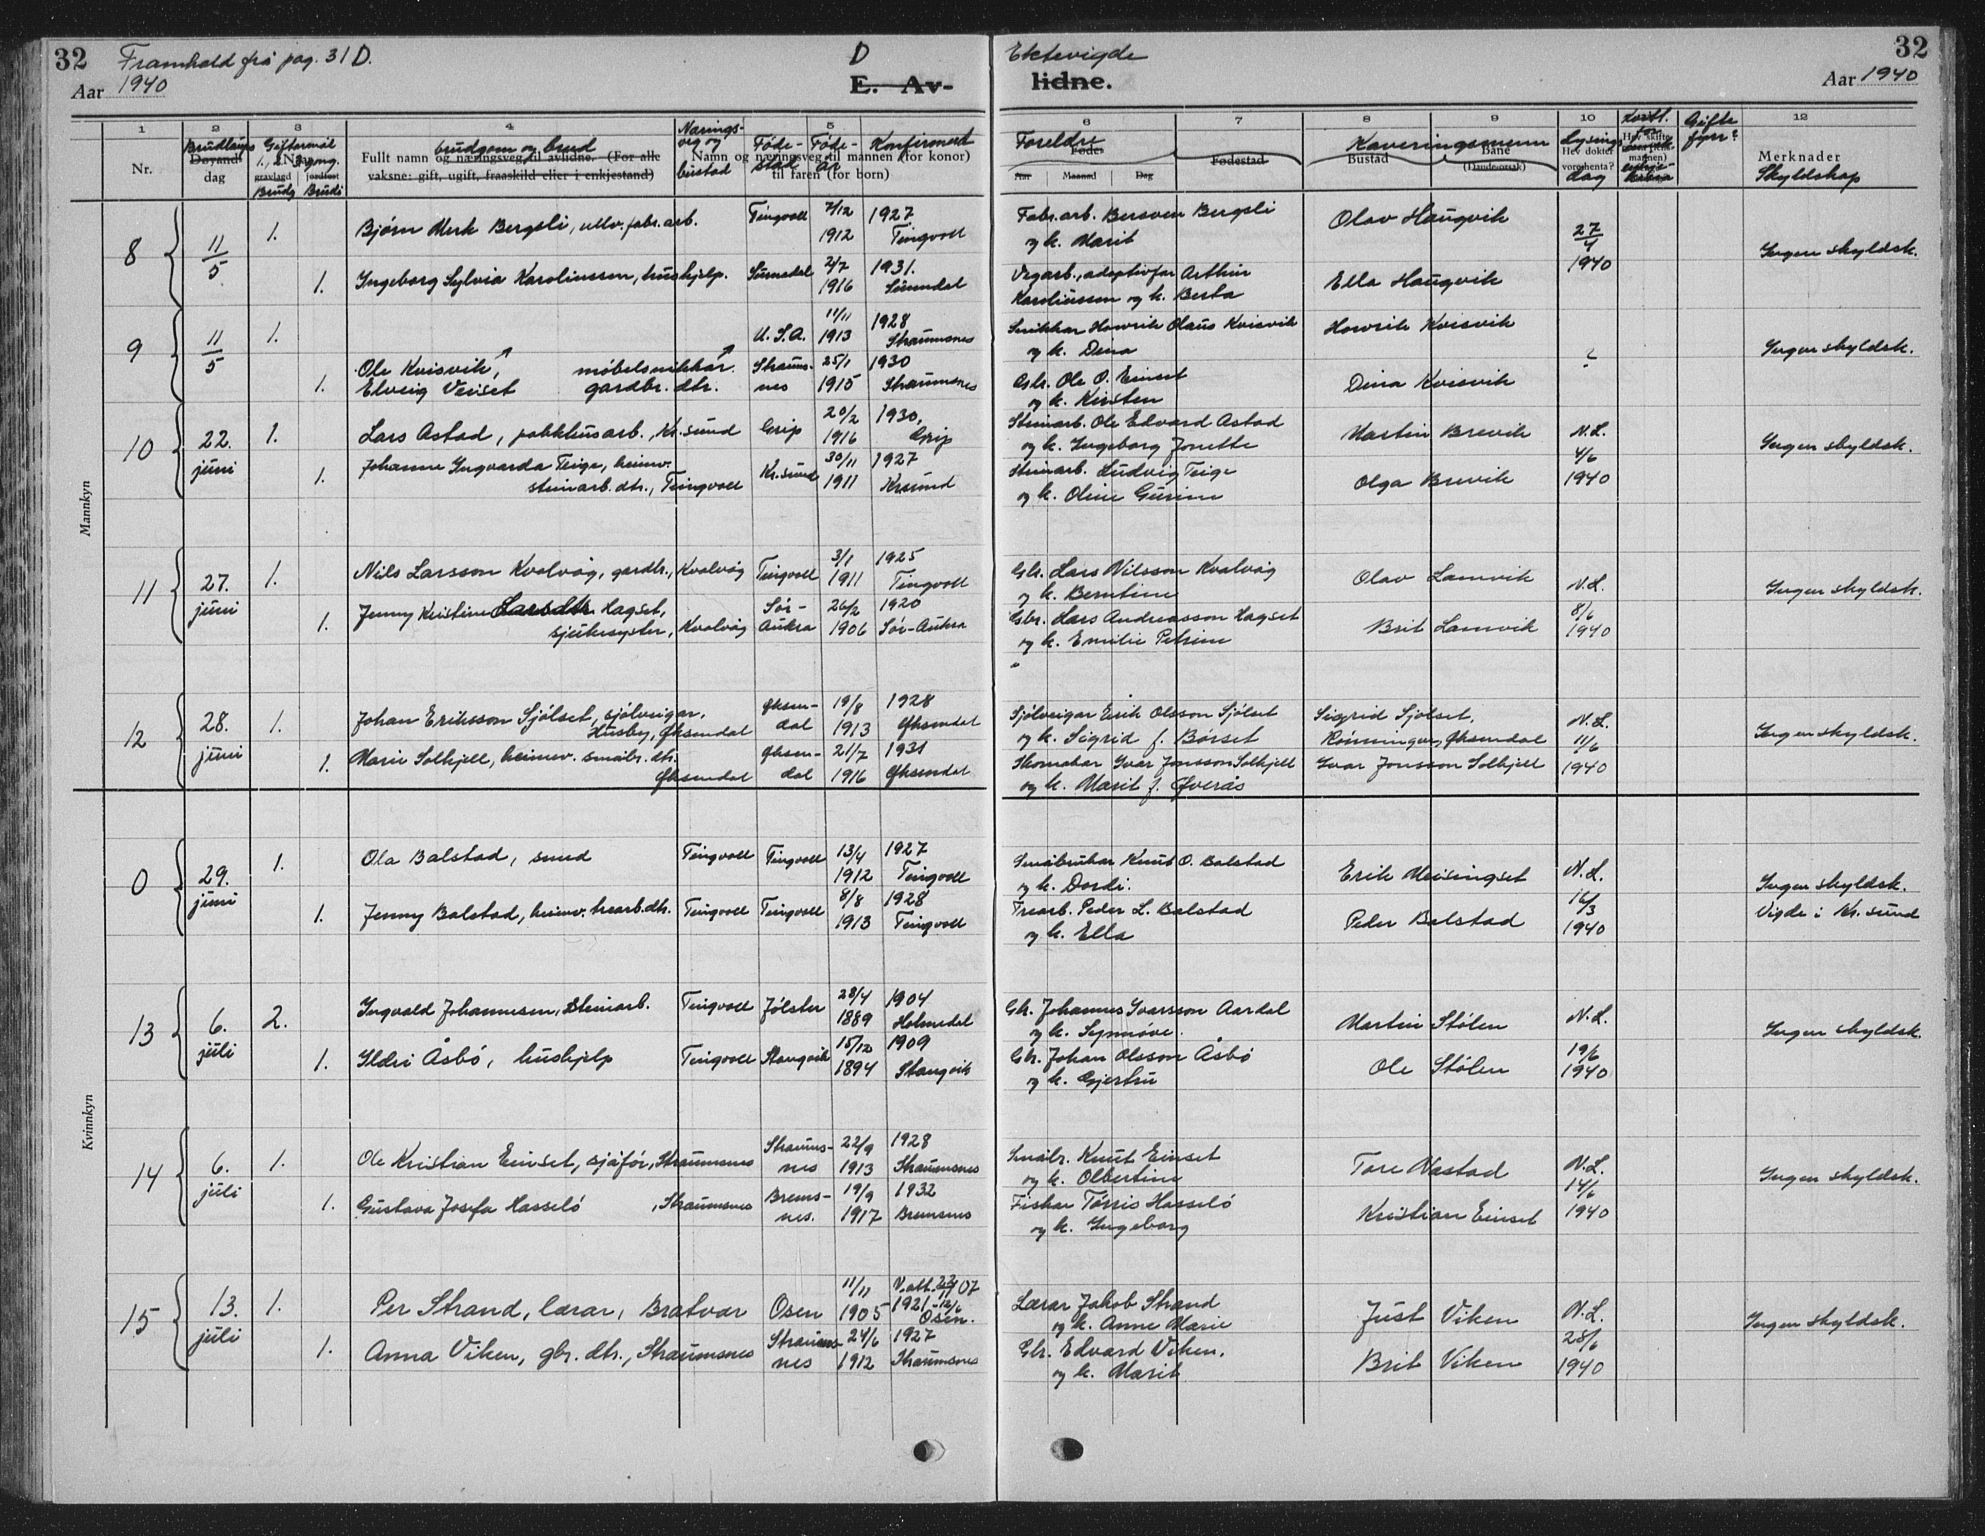 32 Framhald frå pag. 31 D. D Ektevigde 32
Aar 1940 E. Av- lidne. Aar 1940
1 2 3 4 5 6 7 8 9 10 12
Nr. Brudlaups dag Giftermål 1, 2, 3 gong. Brudg Brudi
brudgom og brud
Fullt namn og næringsveg til avlidne. (For alle
vaksne: gift, ugift, fraaskild eller i enkjestand)
Nærings-
veg og
bustad
Føde-
stad
Føde-
År
Konfirmert
Namn og næringsveg til mannen (for konor)
til faren (for born)
Foreldre
Fødestad
Aar Maaned Dag
Kaveringsmenn
Bustad Bane
(Dandeorsak)
Lysings
Hev dokter
vore henta?
dag
Gifte
før?
Merknader
Skyldskap
Mannkyn
8 11/5 1. Bjørn Merk Bergsli, ullv. fabr. arb. Tingvoll 7/12 1912 1927 Tingvoll Fabr. arb. Bersven Bergsli og k. Marit Olav Haugvik 27/4 1940 Ingen skyldsk.
1. Ingeborg Sylvia Karolinssen, hushjelp. Sunndal 2/7 1916 1931. Sunndal Vegarb., adoptivfar Arthur Karolinssen og k. Berta Ella Haugvik
9 11/5 1. Ole Kvisvik, møbelsnikkar. U.S.A. 11/11 1913 1928 Straumsnes Snikkar Henrik Olaus Kvisvik og k. Dina Henrik Kvisvik Ingen skyldsk.
1. Elveig Veiset gardbr. dtr. Straums-nes 25/1 1915 1930 Straumsnes Gbr. Ole O. Einset og k. Kirsten Dina Kvisvik
10 22. juni 1. Lars Astad, pakkhusarb., Kr.sund Grip 20/2 1916 1930, Grip Steinarb. Ole Edvard Astad og k. Ingeborg Jonette Martin Brevik N.L. 4/6 1940 Ingen skyldsk.
1. Johanne Ingvarda Teige, heimv. steinarb. dtr., Tingvoll Kr.sund 30/11 1911 1927 Kr.sund Steinarb. Ludvig Teige og k. Oline Gurine Olga Brevik
11 27. juni 1. Nils Larsson Kvalvåg, gardbr., Kvalvåg Tingvoll 3/1 1911 1925 Tingvoll Gbr. Lars Nilsson Kvalvåg og k. Berntine Olav Lamvik N.L. 8/6 1940 Ingen skyldsk.
1. Jenny Kristine Larsdtr. Hagset, sjukesyster, Kvalvåg Sør-Aukra 26/2 1906 1920 Sør-Aukra Gbr. Lars Andreasson Hagset og k. Emilie Petrine Brit Lamvik
12 28. juni 1. Johan Eriksson Sjølset, sjølveigar, Husby, Øksendal Øksen-dal 19/8 1913 1928 Øksendal Sjølveigar Erik Olsson Sjølset og k. Sigrid f. Børset Sigrid Sjølset, Rønningen, Øksendal N.L. 11/6 1940 Ingen skyldsk.
1. Marie Solhjell, heimev. småbr. dtr. Øksendal Øksen-dal 21/7 1916 1931 Øksendal Skomakar Ivar Jonsson Solhjell og k. Marit f. Øverås Ivar Jonsson Solhjell
0 29. juni 1. Ola Balstad, smed Tingvoll Tingvoll 13/4 1912 1927 Tingvoll Småbrukar Knut O. Balstad og k. Dordi. Erik Meisingset N.L. 16/3 1940 Ingen skyldsk. Vigde i Kr.sund
1. Jenny Balstad, heimv. trearb. dtr. Tingvoll Tingvoll 8/8 1913 1928 Tingvoll Trearb. Peder L. Balstad og k. Ella Peder Balstad
Kvinnkyn
13 6. juli 2. Ingvald Johannesen, steinarb. Tingvoll Jølster 28/4 1889 1904 Holmedal Gbr. Johannes Ivarsson Aardal og k. Synnøve. Martin Stølen N.L. 19/6 1940 Ingen skyldsk.
1. Ildri Åsbø, hushjelp Tingvoll Stangvik 15/12 1894 1909 Stangvik Gbr. Johan Olsson Åsbø og k. Gjertru Ole Stølen
14 6. juli 1. Ole Kristian Einset, sjåfør, Straumsnes Straums-nes 22/9 1913 1928 Straumsnes Småbr. Knut Einset og k. Olbertine Tore Nastad N.L. 14/6 1940 Ingen skyldsk.
1. Gustava Josefa Hasselø , Straumsnes Brems-nes. 19/9 1917 1932 Bremsnes Fiskar Tørris Hasselø og k. Ingeborg Kristian Einset
15 13. juli 1. Per Strand, lærar, Bratvær Osen 11/11 1905 V. att. 22/11 07 1921 - 12/6 Osen. Lærar Jakob Strand og k. Anne Marie Just Viken N.L. 28/6 1940 Ingen skyldsk.
1. Anna Viken, gbr. dtr., Straumsnes Straums-nes 24/6 1912 1927 Straumsnes Gbr. Edvard Viken. og k. Marit Brit Viken